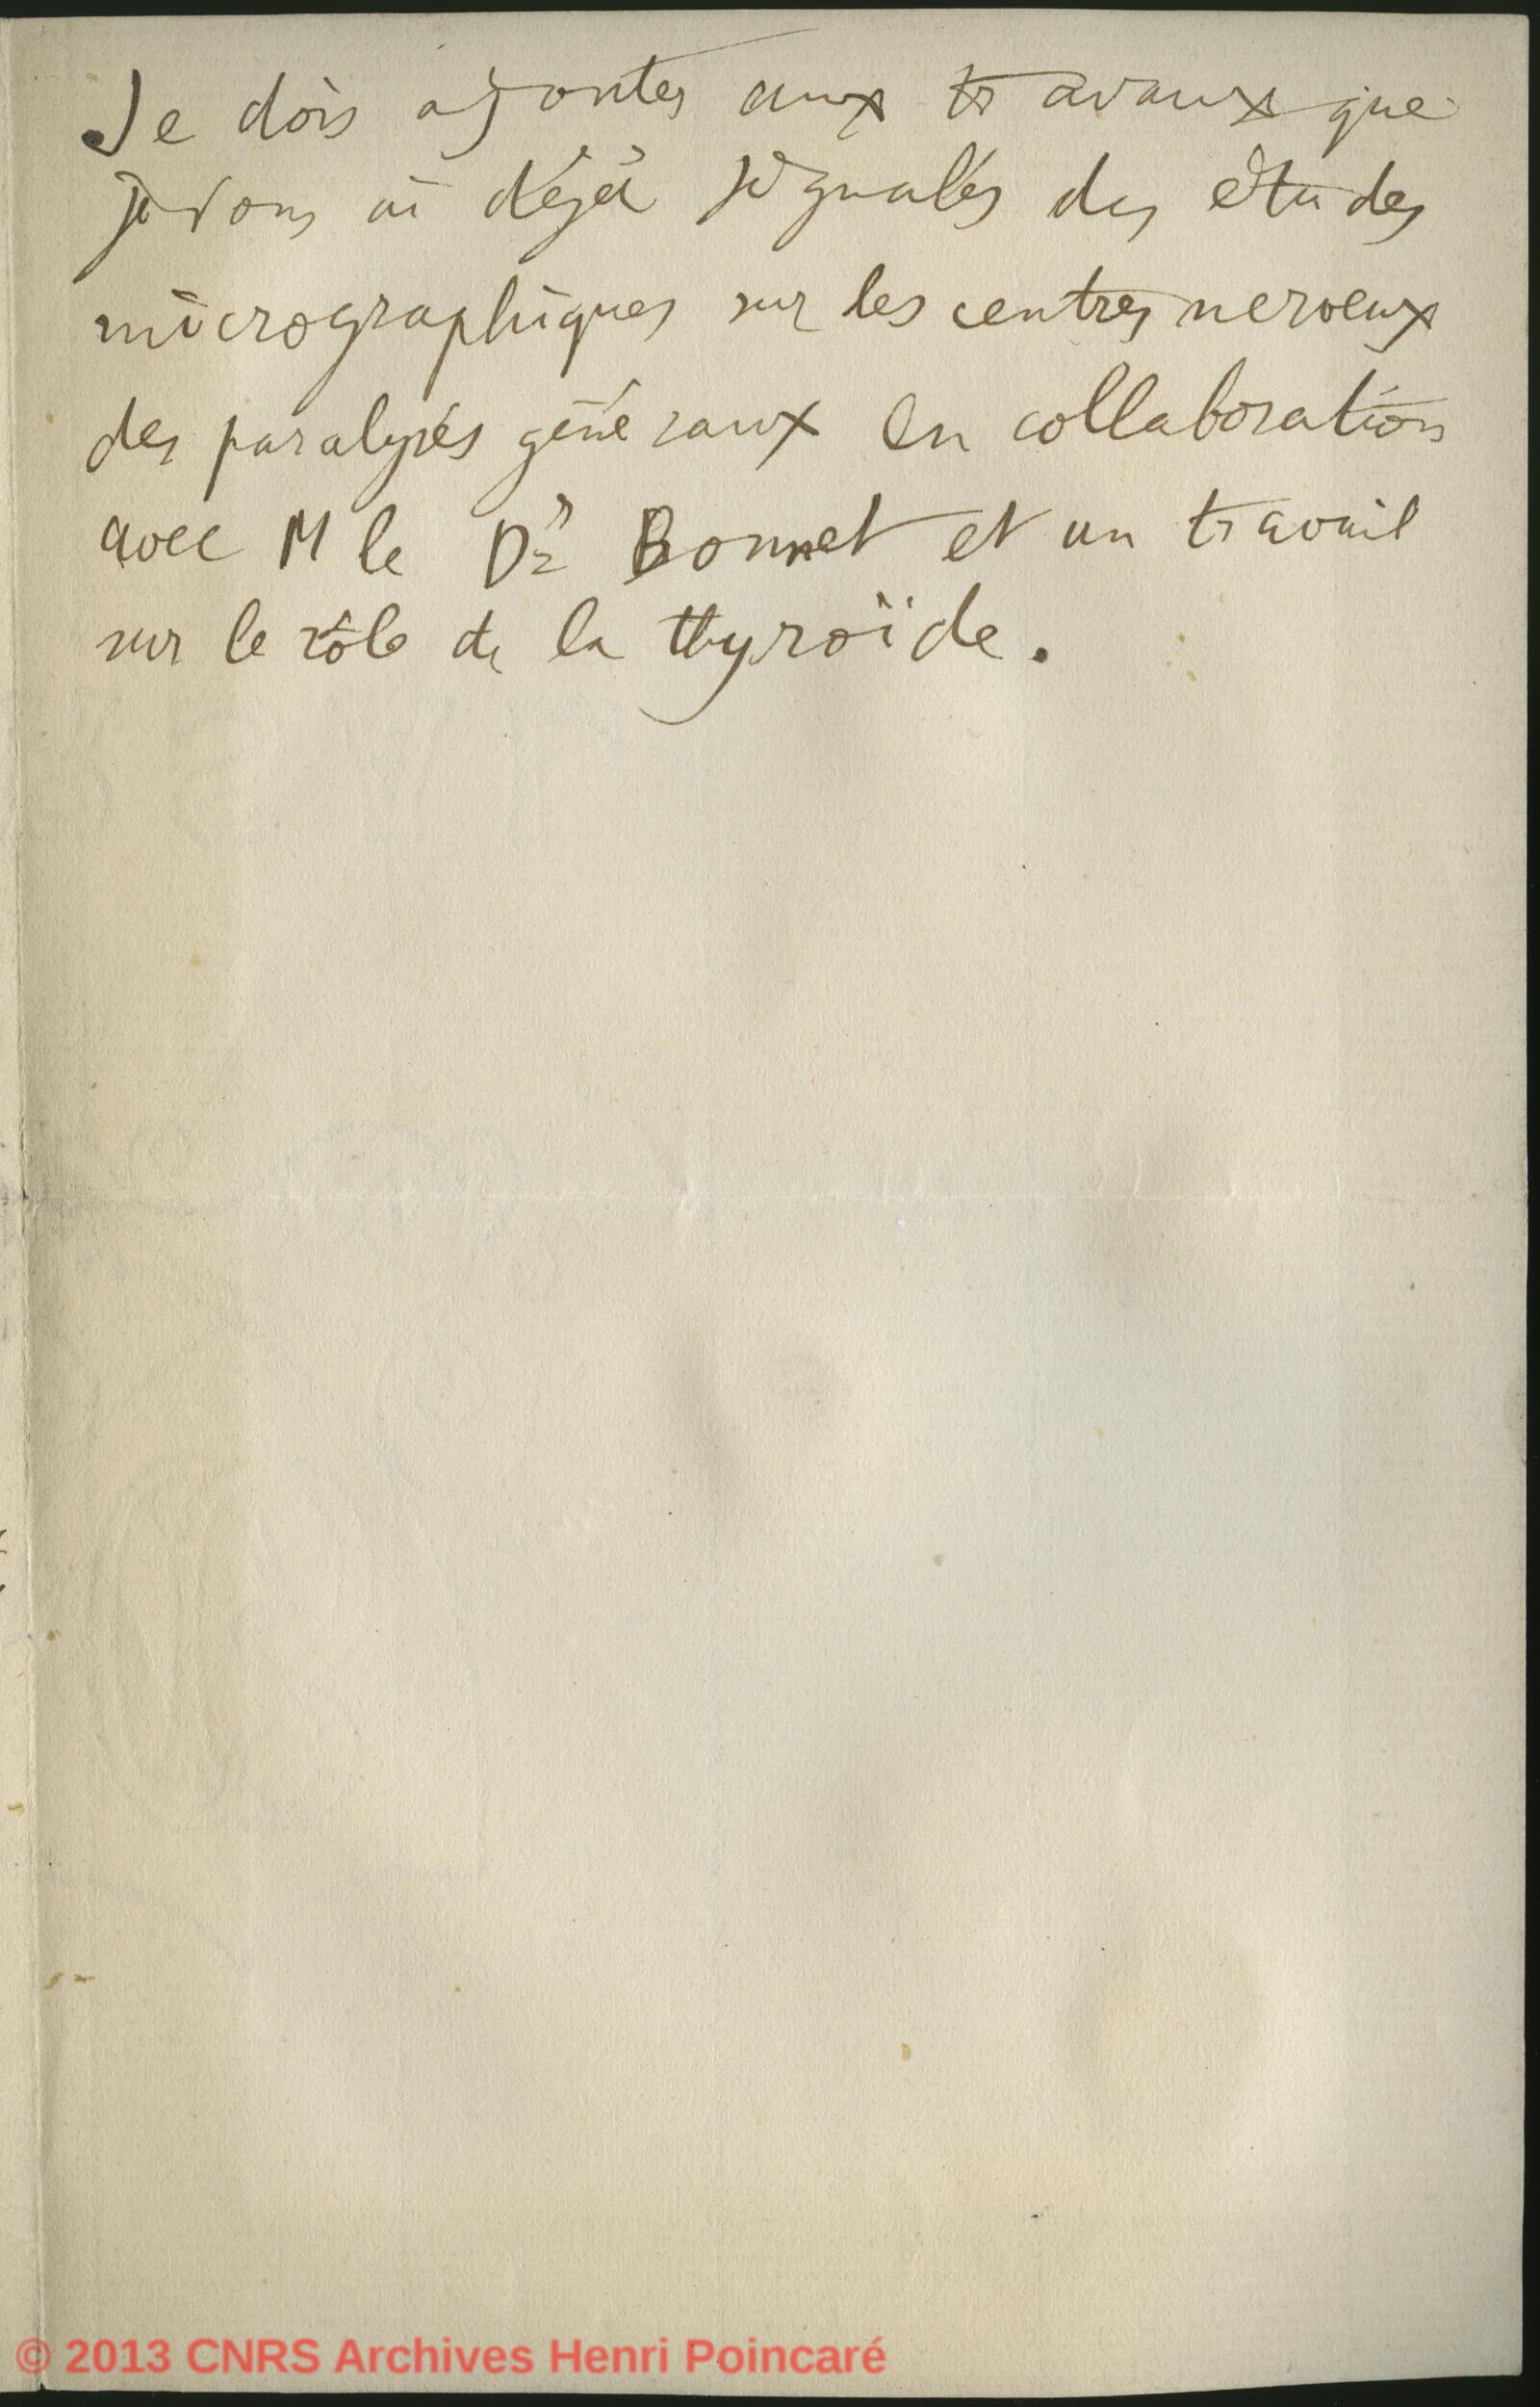 Je dois ajouter aux travaux que
je vous ai déjà signalés des études
micrographiques sur les centres nerveux
des paralysés généraux en collaboration
avec M le Dr Bonnet et un travail
sur le rôle de la thyroïde.
© 2013 CNRS Archives Henri Poincaré